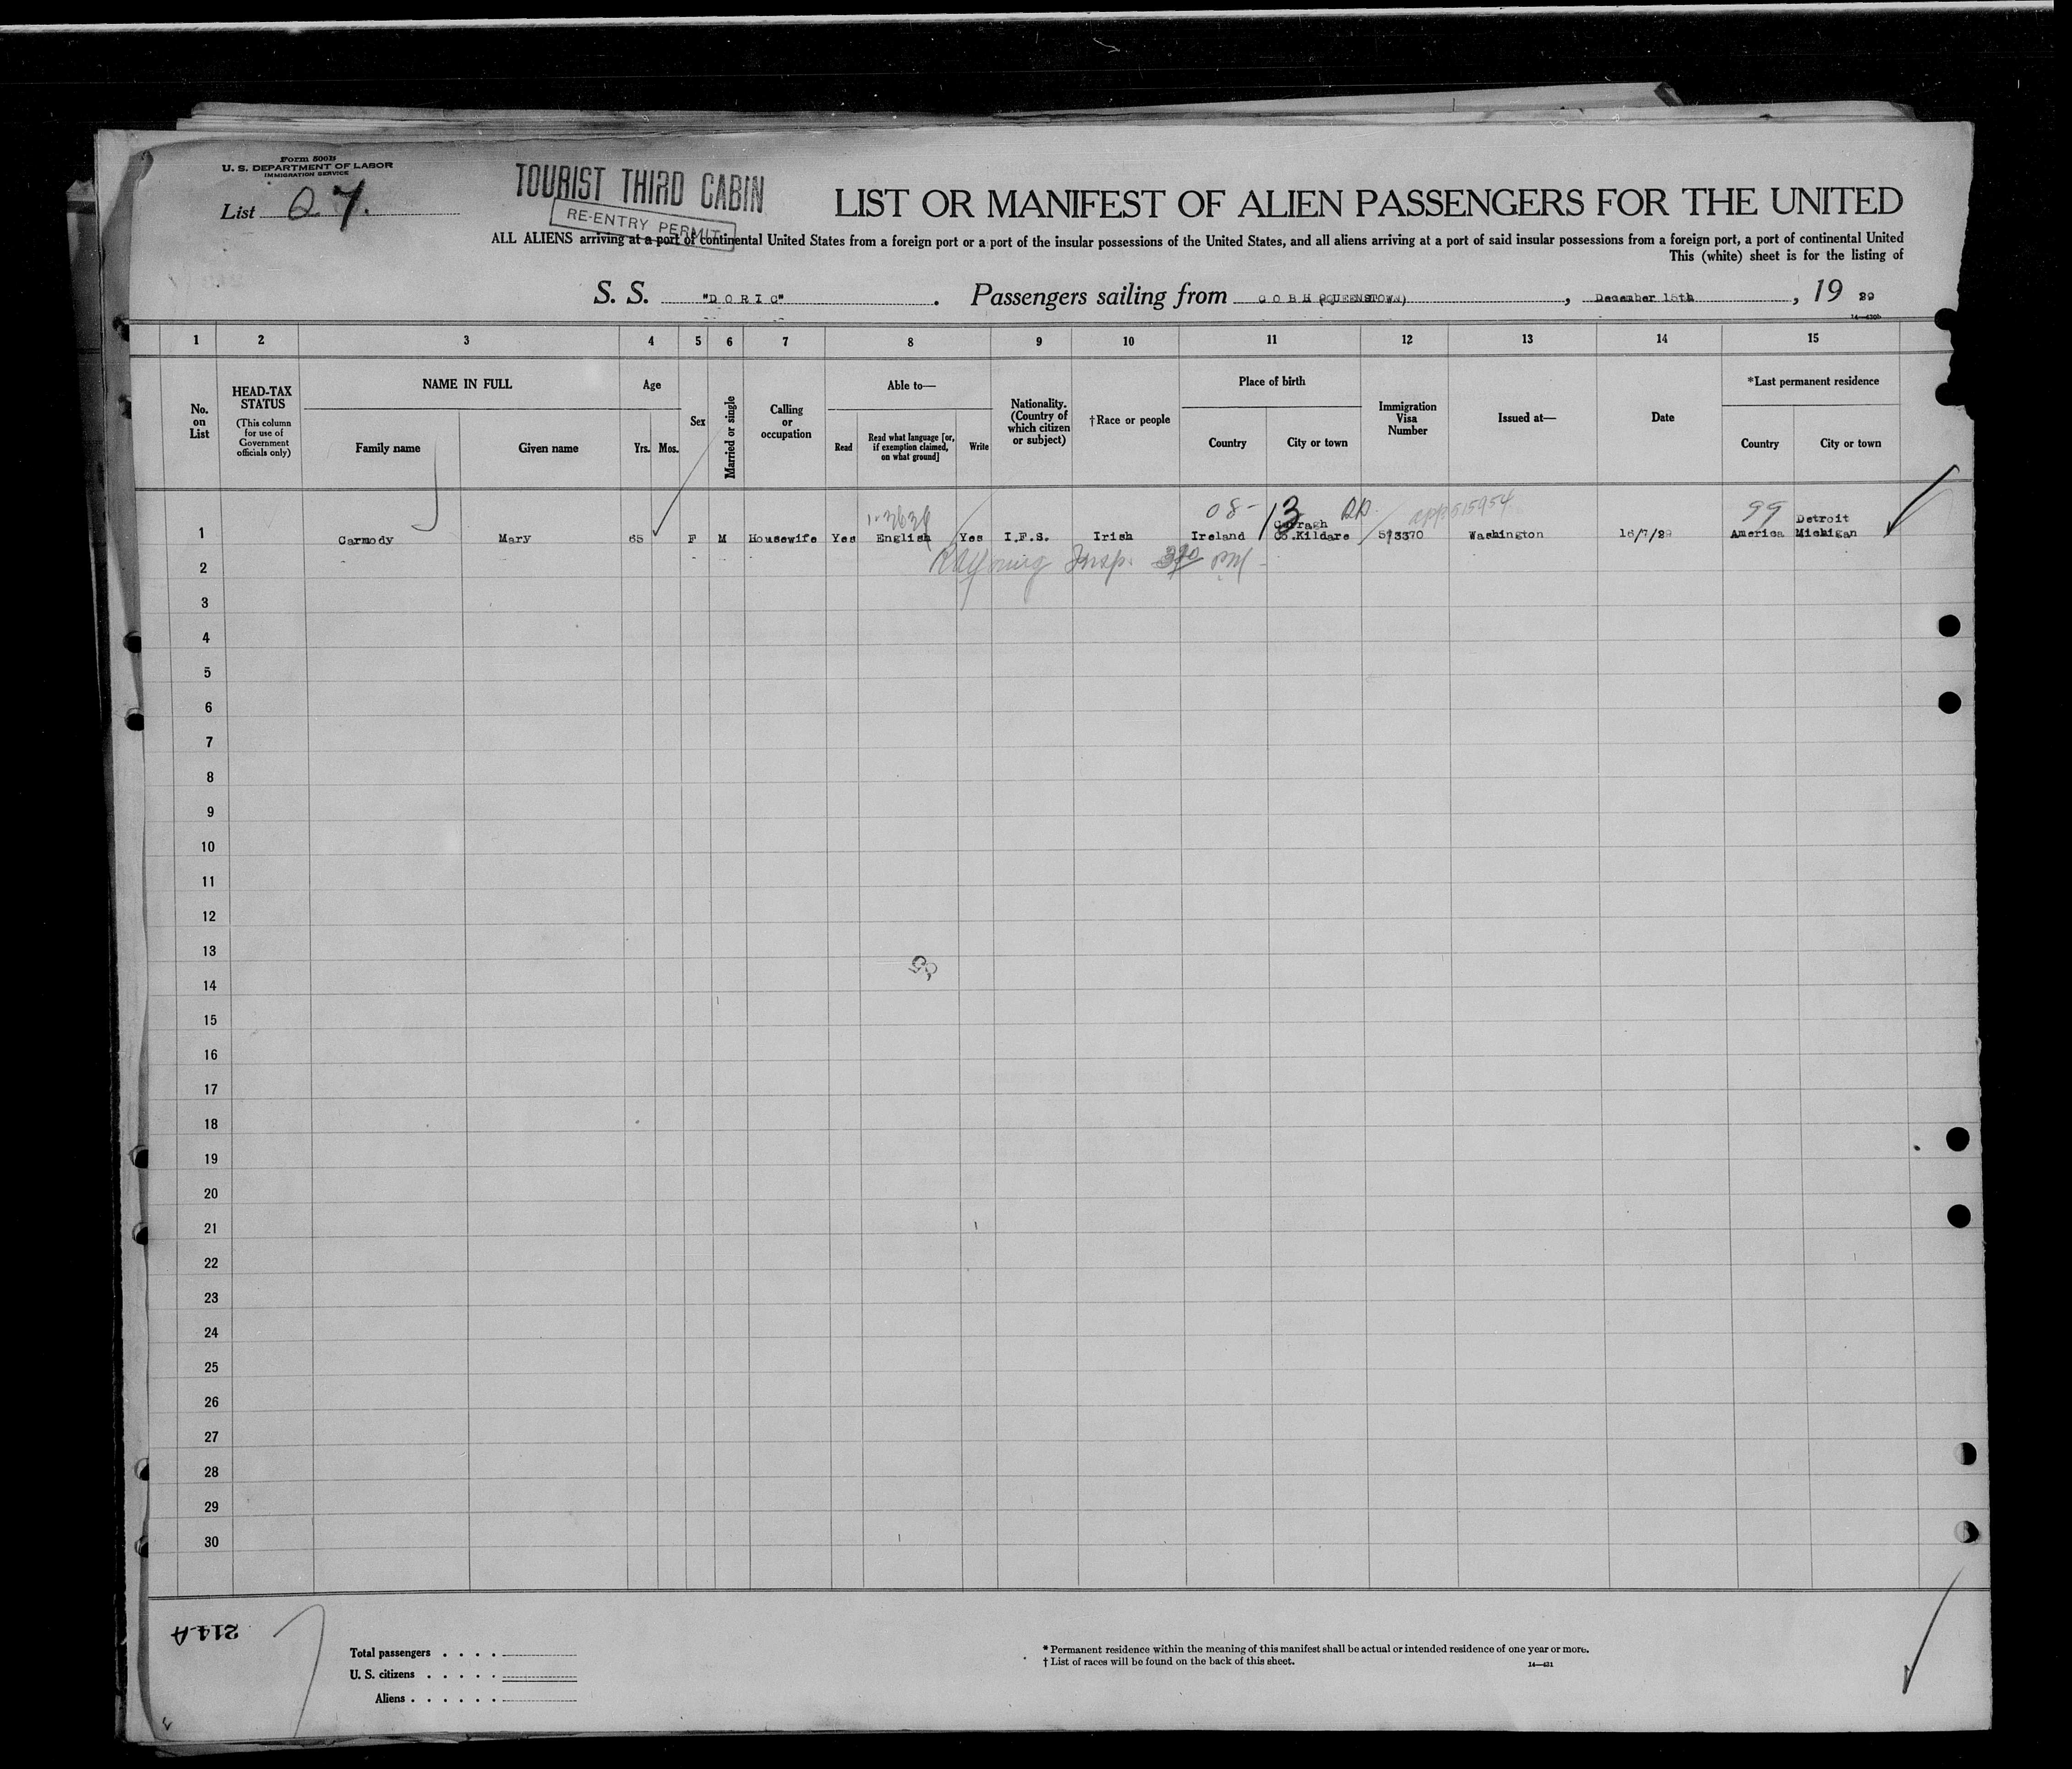 Form 500B
U. S. DEPARTMENT OF LABOR
IMMIGRATION SERVICE
List 27.
TOURIST THIRD CABIN
RE-ENTRY PERMIT
LIST OR MANIFEST OF ALIEN PASSENGERS FOR THE UNITED
ALL ALIENS arriving at a port of continental United States from a foreign port or a port of the insular possessions of the United States, and all aliens arriving at a port of said insular possessions from a foreign port, a port of continental United
This (white) sheet is for the listing of
S. S. "DORIC". Passengers sailing from COBH (QUEENSTOWN), December 15th, 19 29
14—430b
1 2 3 4 5 6 7 8 9 10 11 12 13 14 15
No. on List
HEAD-TAX STATUS
(This column for use of Government officials only)
NAME IN FULL
Family name Given name
Age
Yrs. Mos.
Sex
Married or single
Calling or occupation
Able to—
Read Read what language [or, if exemption claimed, on what ground] Write
Nationality. (Country of which citizen or subject)
†Race or people
Place of birth
Country City or town
Immigration Visa Number
Issued at—
Date
*Last permanent residence
Country City or town
08- 13 99
1 Carmody Mary 65 F M Housewife Yes English Yes I.F.S. Irish Ireland Curragh Co.Kildare 573370 Washington 16/7/29 America Detroit Michigan
Insp.
2
3
4
5
6
7
8
9
10
11
12
13
14
15
16
17
18
19
20
21
22
23
24
25
26
27
28
29
30
214-A
Total passengers . . . .
U. S. citizens . . . . .
Aliens . . . . . .
* Permanent residence within the meaning of this manifest shall be actual or intended residence of one year or more.
† List of races will be found on the back of this sheet.
14—421